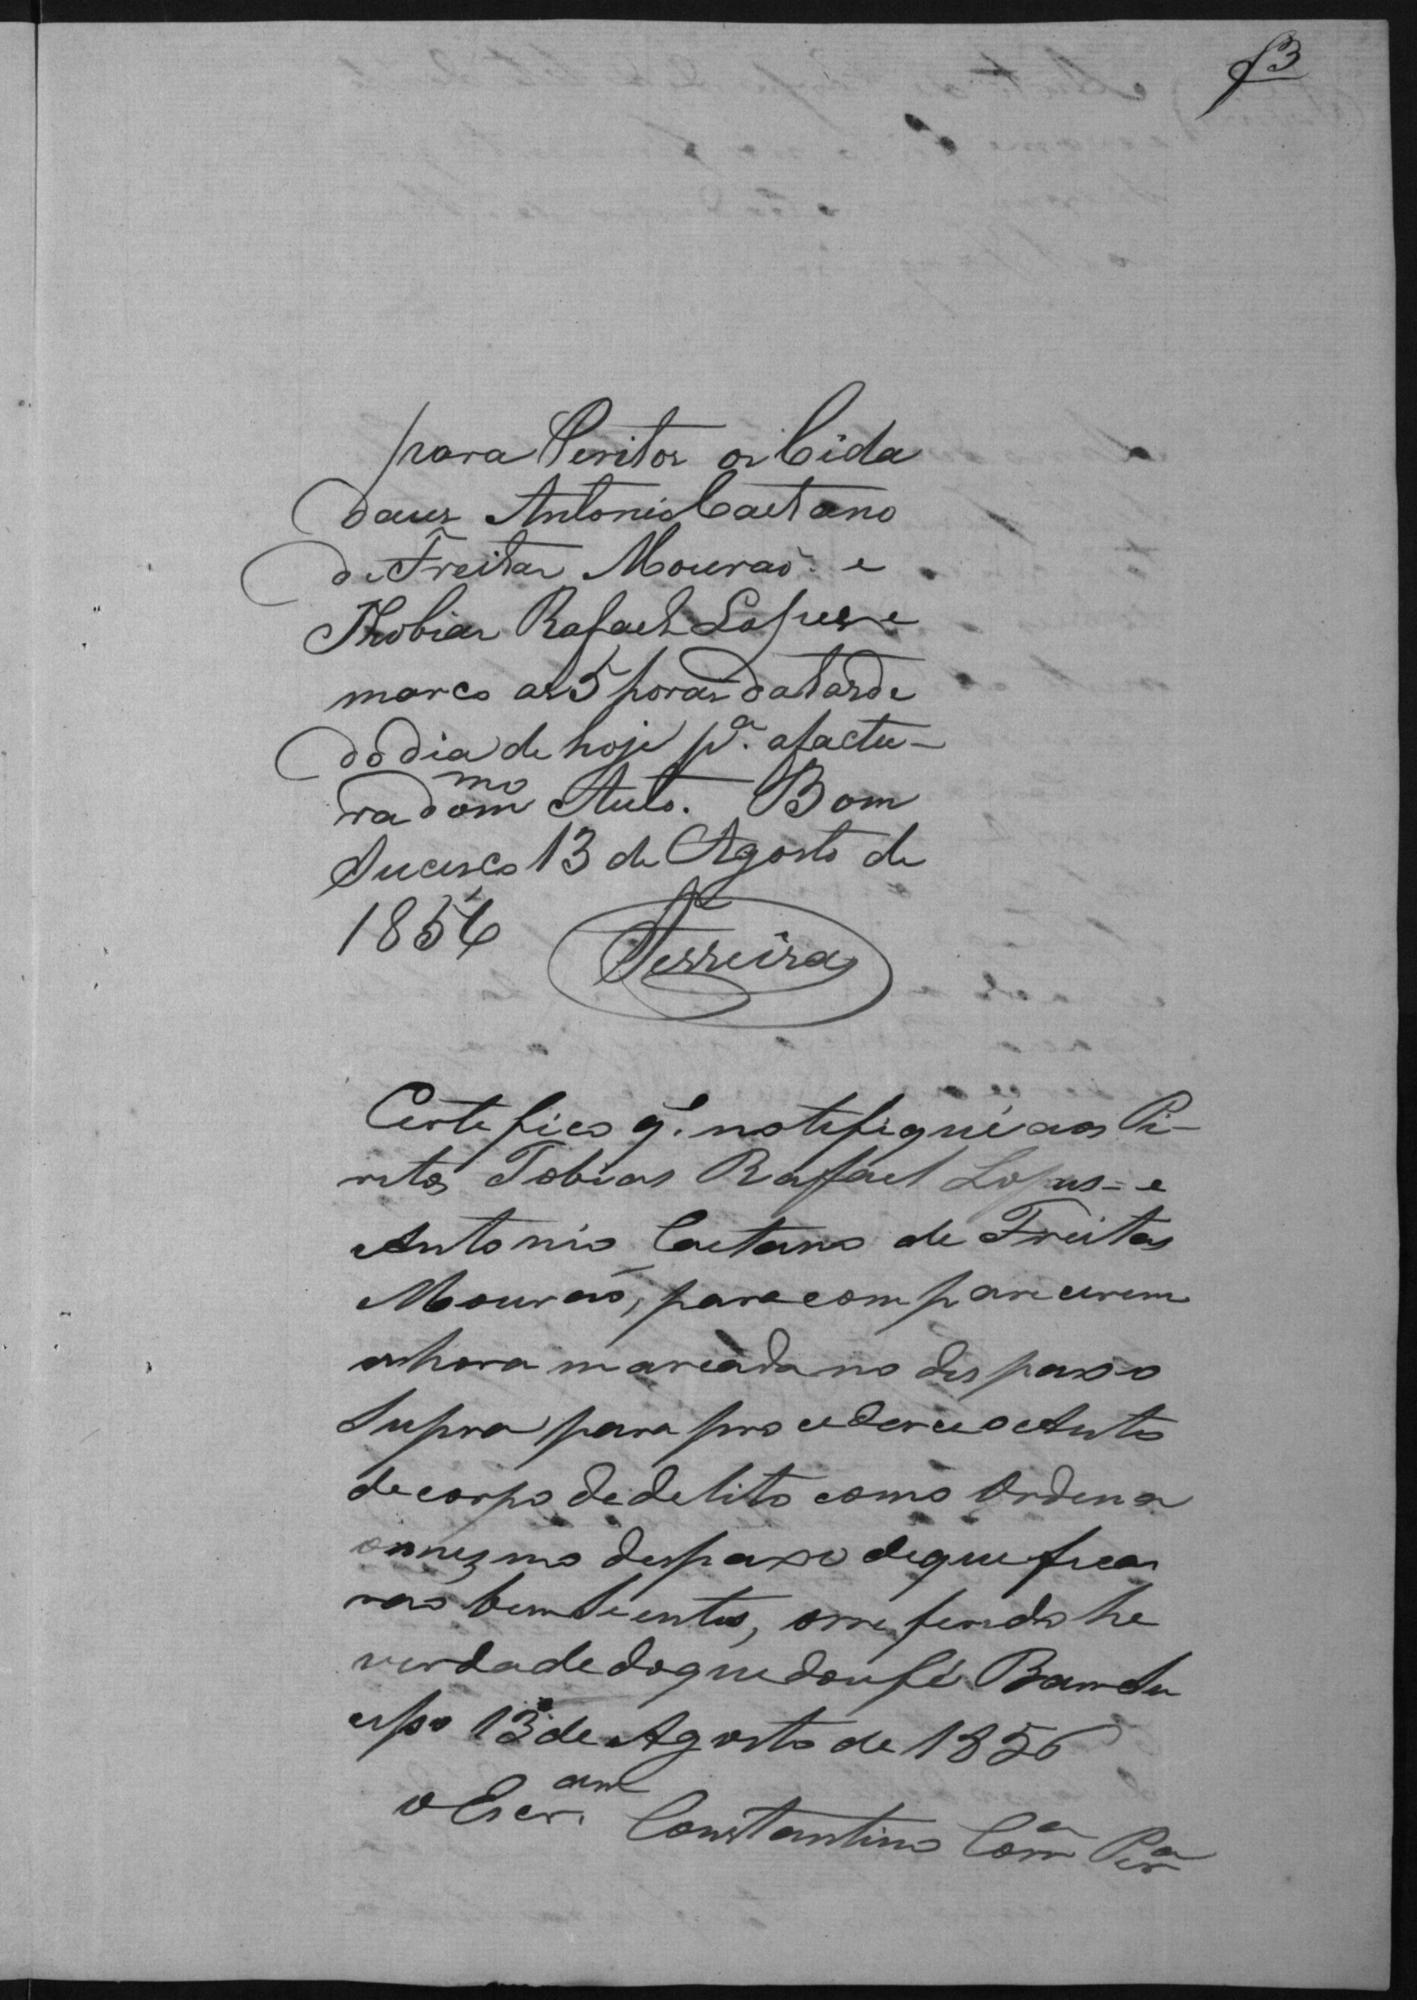 f 3
para Peritos os Cida
daus Antonio Caetano
de Freitas Mourão e
Thobias Rafael Lopes e
marco as 5 horas da tarde
do dia de hoje pª. afactu-
ra do mmo Auto. Bom
Sucesco 13 de Agosto de
1856 Ferreira
Certefico q'. notefiqué aos Pi-
ritos Tobias Raffael Lopus = e
Antonio Caetano de Freitas
Mourão, para compareurem
ashora marcada no despaxo
Supra para procederce o Auto
de corpo de delito como Ordena
omesmo despaxo de que fica
rao bem Sientes, orreferido he
verdade do que dou fé Bam Su
cesso 13 de Agosto de 1856
o Escr.am Constantino Corrª Perª